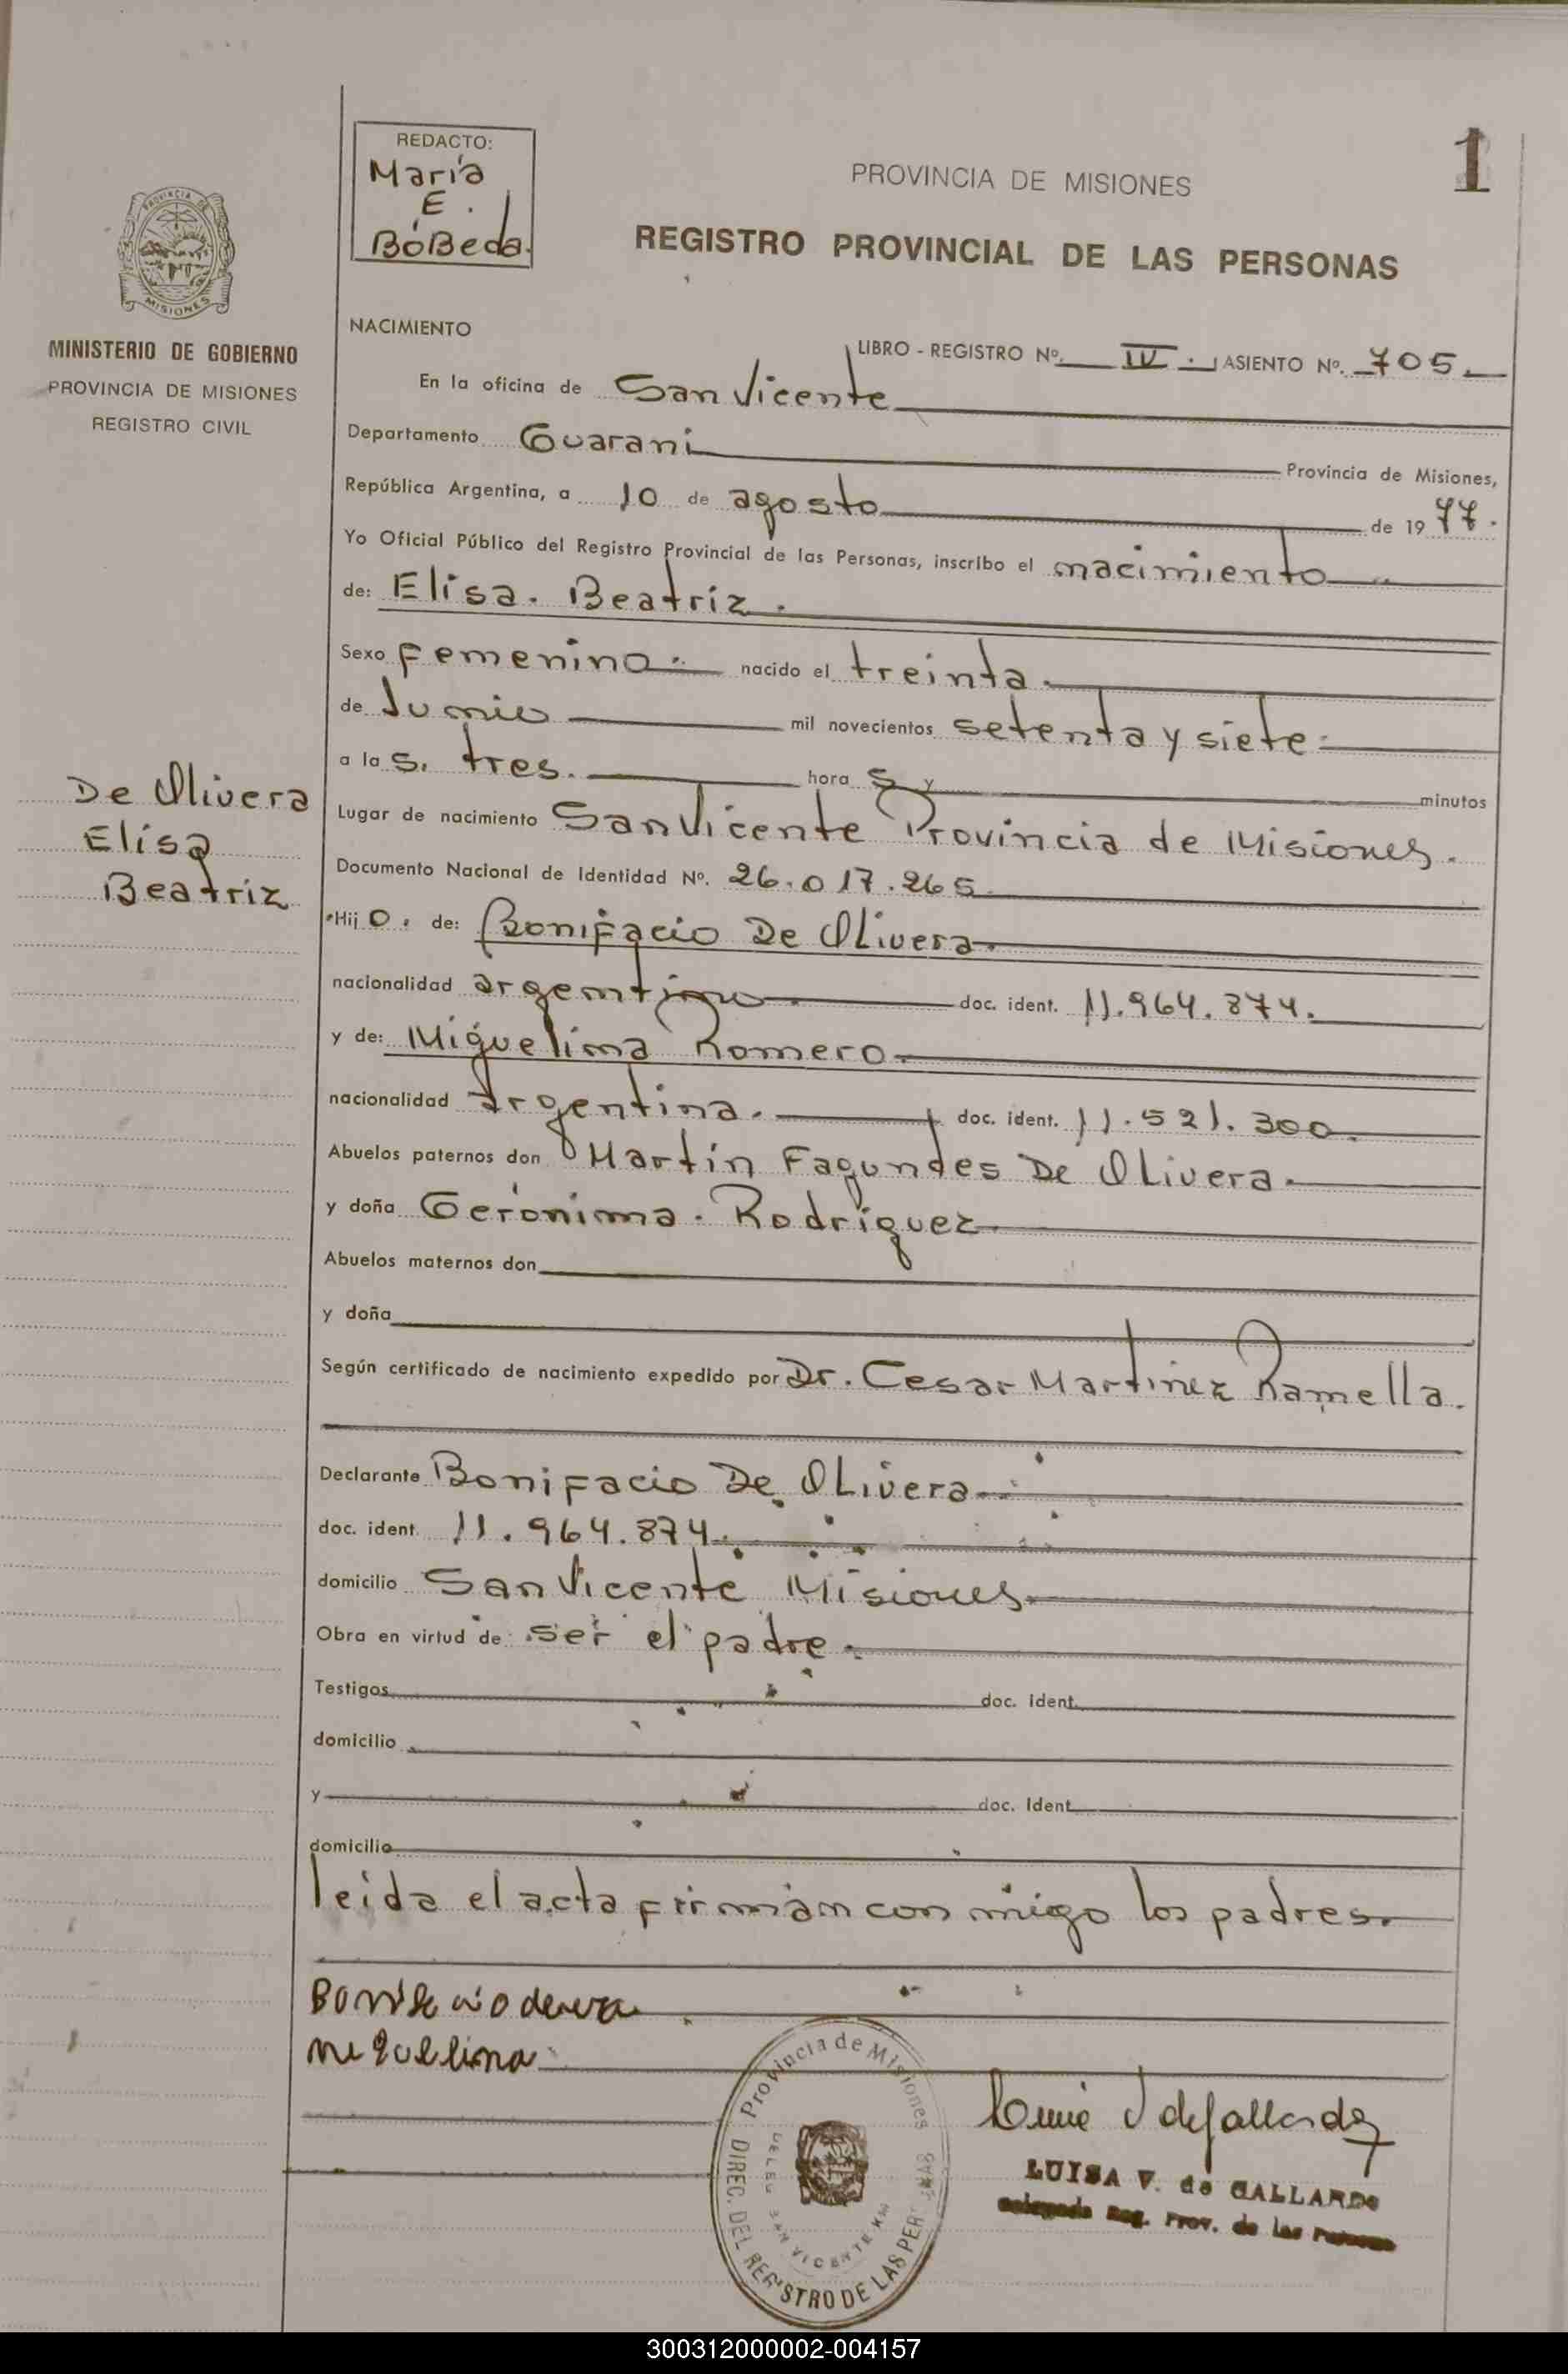 1
REDACTO:
María
E.
BóBeda.
PROVINCIA DE MISIONES
REGISTRO PROVINCIAL DE LAS PERSONAS
PROVINCIA DE
MISIONES
MINISTERIO DE GOBIERNO
PROVINCIA DE MISIONES
REGISTRO CIVIL
NACIMIENTO
LIBRO - REGISTRO Nº. IV. ASIENTO Nº. 705.
En la oficina de San Vicente
Departamento Guarani Provincia de Misiones,
República Argentina, a 10 de agosto de 1977.
Yo Oficial Público del Registro Provincial de las Personas, inscribo el nacimiento
de: Elisa. Beatríz.
Sexo Femenino. nacido el treinta.
de Junio mil novecientos setenta y siete.
a la s. tres. hora s y minutos
Lugar de nacimiento San Vicente Provincia de Misiones.
Documento Nacional de Identidad Nº. 26.017.265
Hij o. de: Bonifacio De Olivera.
nacionalidad argentino. doc. ident. 11.964.874.
y de: Miguelina Romero.
nacionalidad argentina. doc. ident. 11.521.300.
Abuelos paternos don Martín Fagundes De Olivera.
y doña Gerónima. Rodríguez.
Abuelos maternos don
y doña
Según certificado de nacimiento expedido por Dr. Cesar Martinez Ramella.
Declarante Bonifacio De Olivera.
doc. ident. 11.964.874.
domicilio San Vicente Misiones.
Obra en virtud de ser el padre.
Testigos doc. ident.
domicilio
y doc. Ident.
domicilio
leida el acta firman con migo los padres.
De Olivera
Elisa
Beatríz
Provincia de Misiones
DIREC. DEL REGISTRO DE LAS PERSONAS
SAN VICENTE
LUISA V. de GALLARDO
Delegada Reg. Prov. de las Personas
300312000002-004157